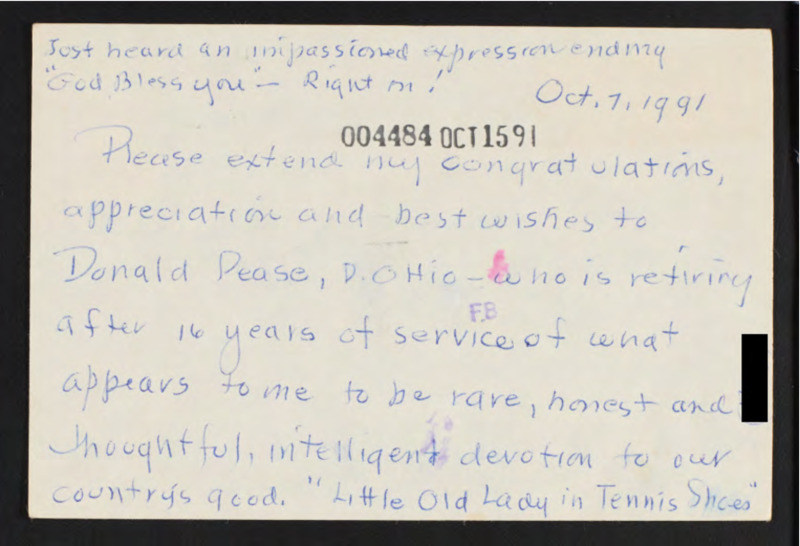 Just heard an impassioned expression ending
"God Bless you" - Right on!
Oct. 7, 1991
004484 OCT1591
Please extend my congratulations,
appreciation and best wishes to
Donald Pease, D. OHio - who is retiring
F.B
after 16 years of service of what
appears to me to be rare, honest and
thoughtful, intelligent devotion to our
country's good. "Little Old Lady in Tennis Shoes"